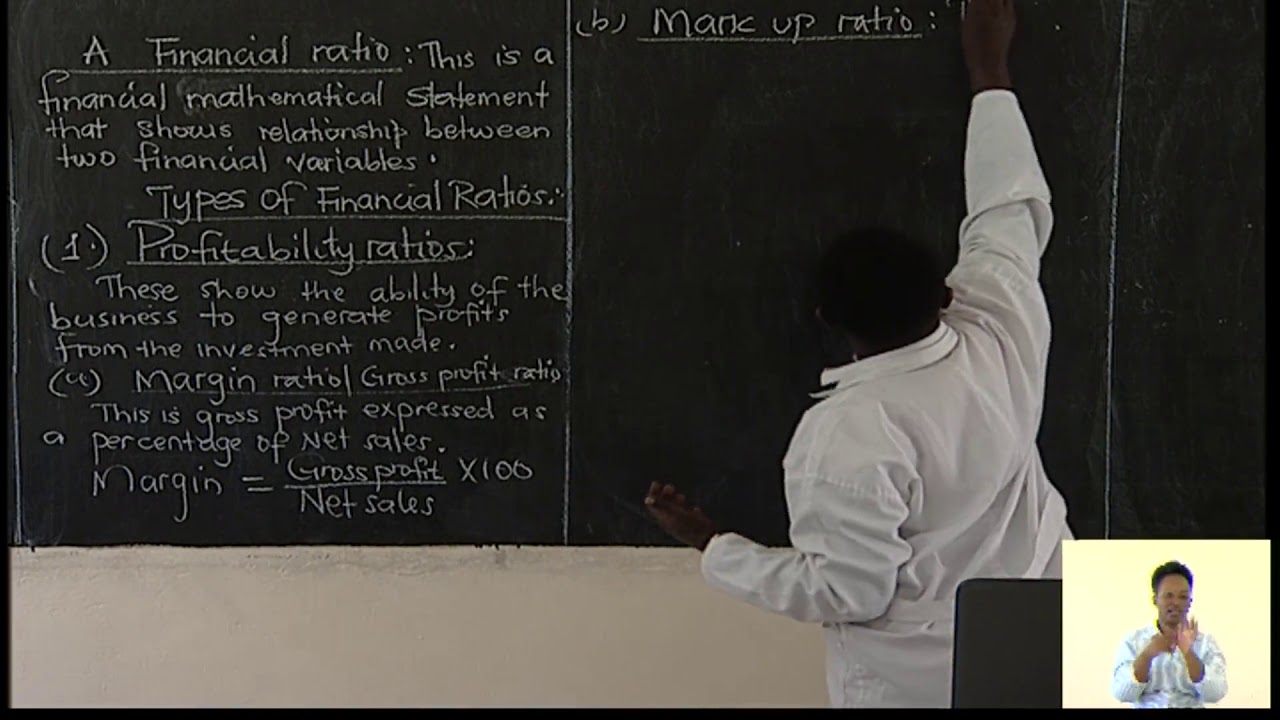 A Financial ratio: This is a
financial mathematical statement
that shows relationship between
two financial variables.
Types of Financial Ratios:
(1.) Profitability ratios:
These show the ability of the
business to generate profits
from the investment made.
(a) Margin ratio/Gross profit ratio
This is gross profit expressed as
a percentage of Net sales.
Margin = Gross profit X100
Net sales
(b) Mark up ratio: